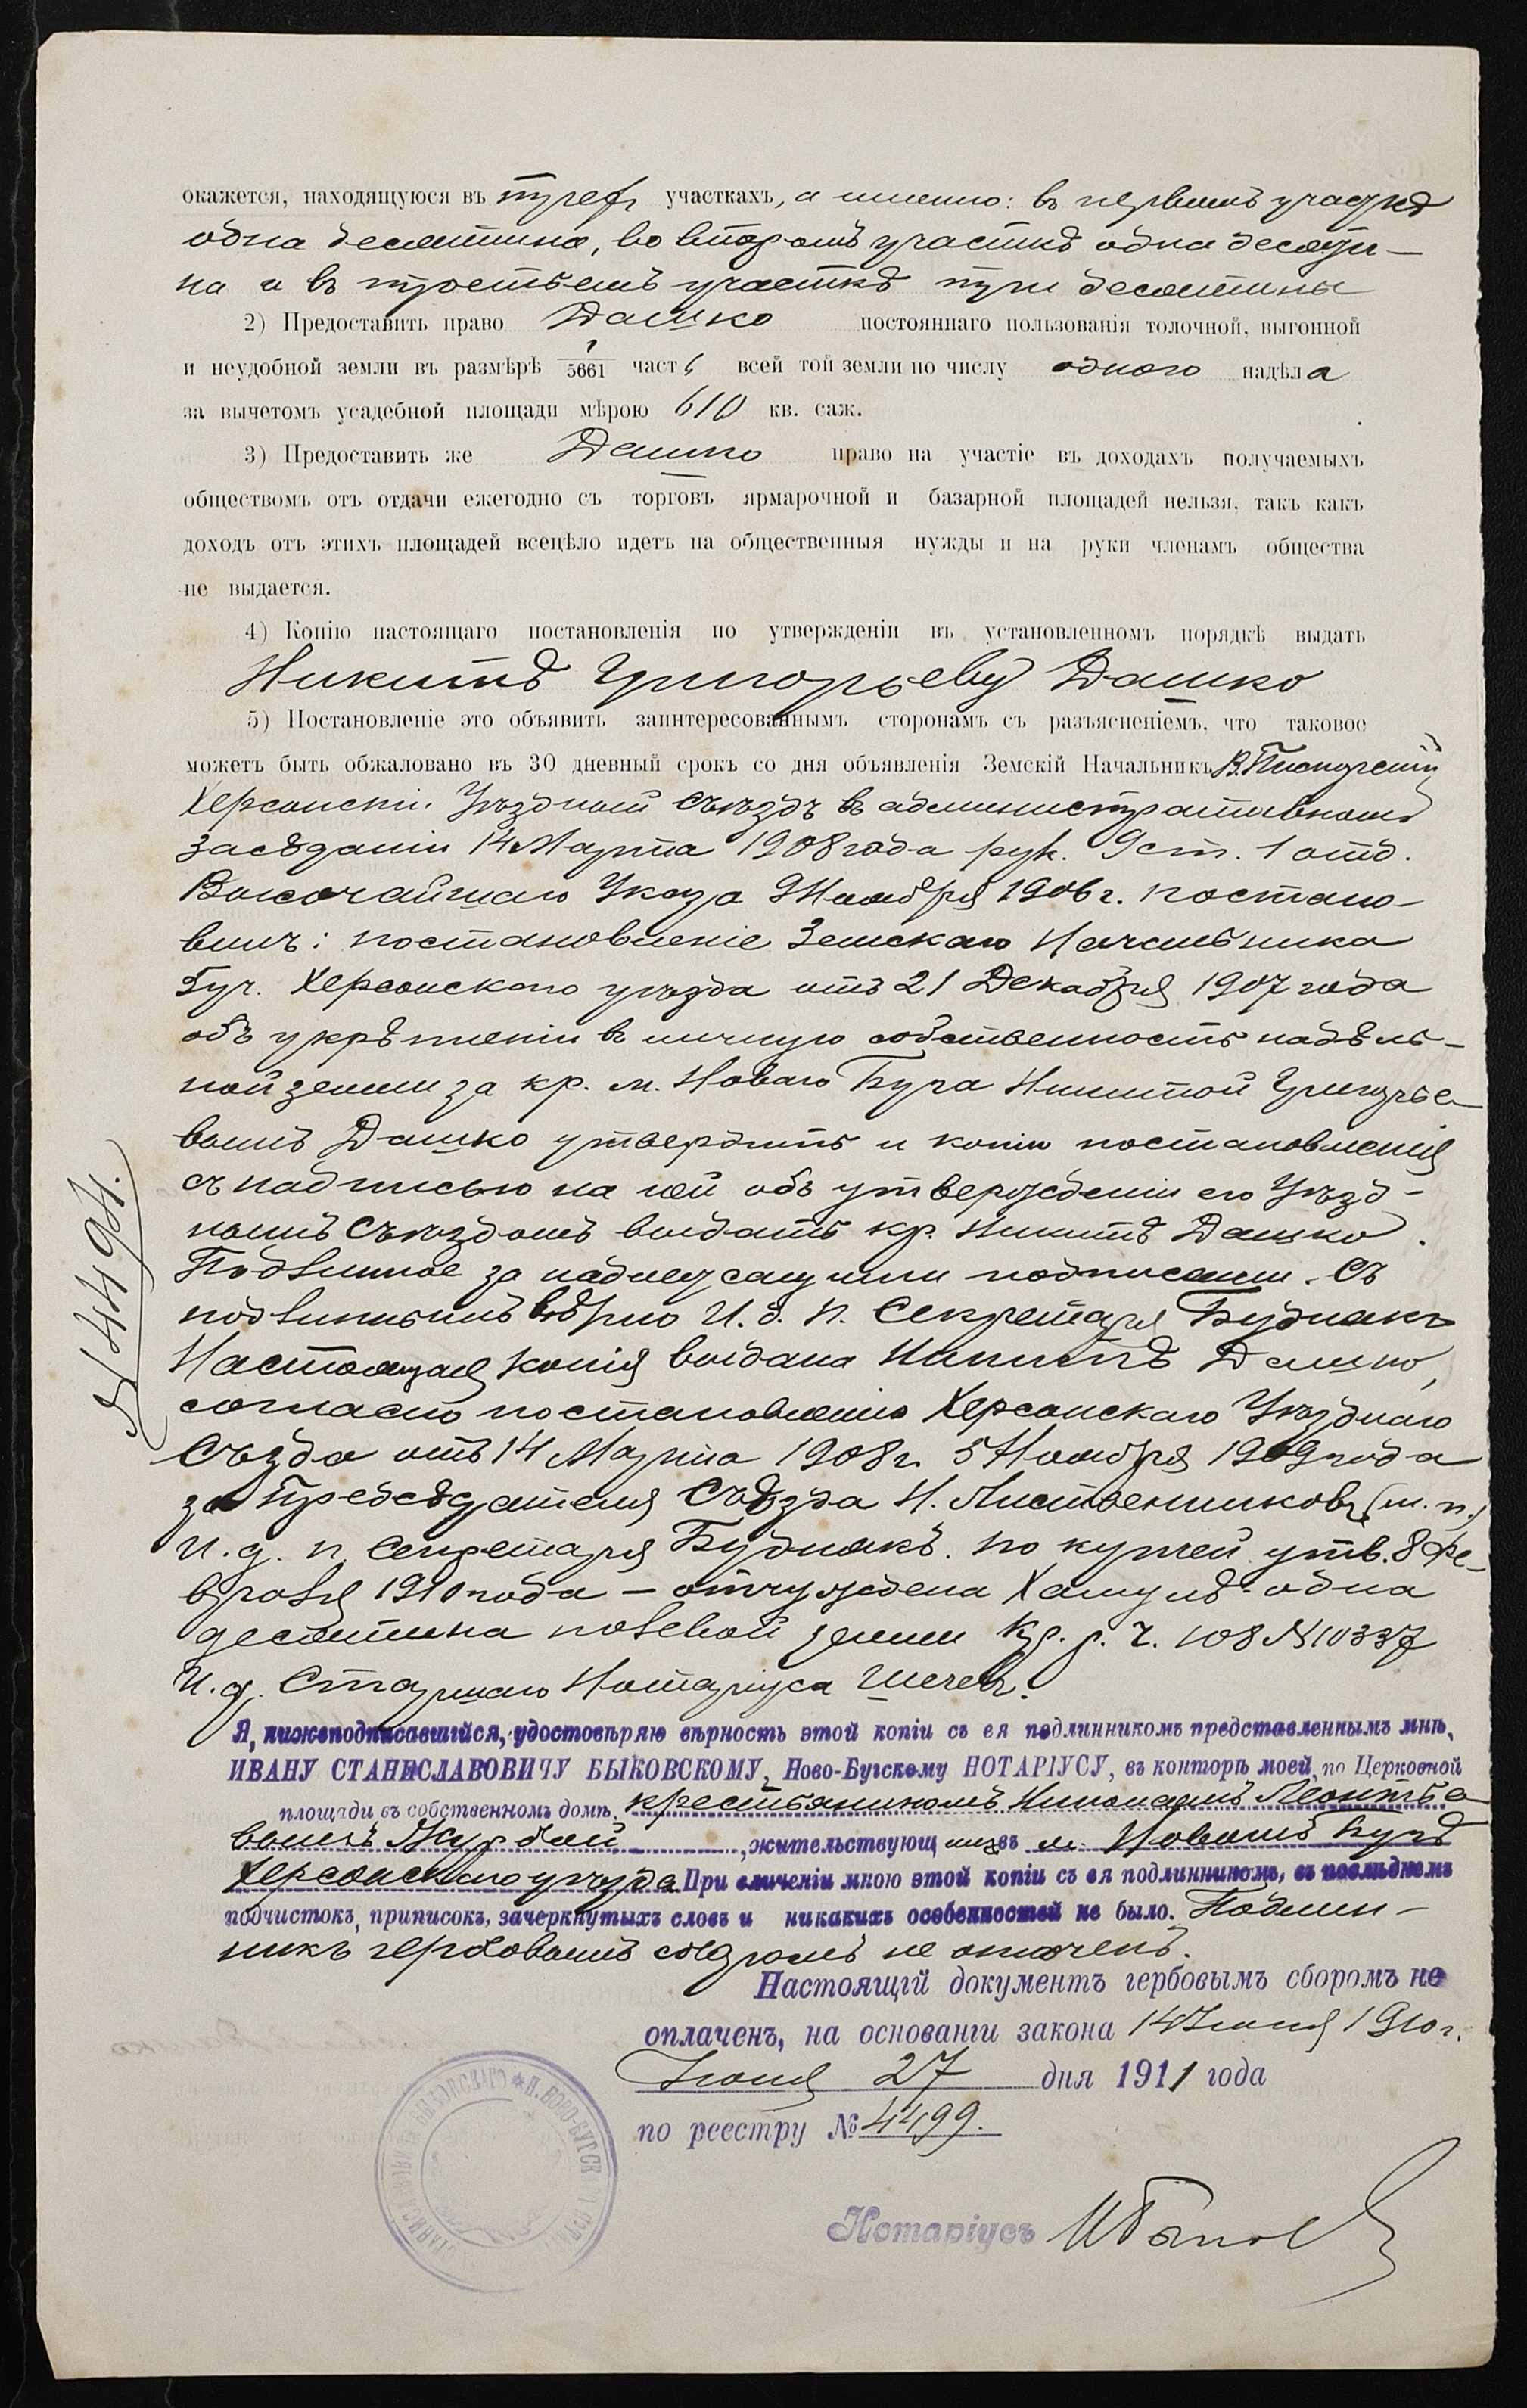 окажется, находящуюся въ трехъ участкахъ, а именно: въ первомъ участкѣ
одна десятина, во второмъ участкѣ одна десяти-
на и въ третьемъ участкѣ три десятины
2) Предоставить право Дашко постояннаго пользованія толочной, выгонной
и неудобной земли въ размѣрѣ 1/5661 часть всей той земли по числу одного надѣла
за вычетомъ усадебной площади мѣрою 610 кв. саж.
3) Предоставить же Дашко право на участіе въ доходахъ получаемыхъ
обществомъ отъ отдачи ежегодно съ торговъ ярмарочной и базарной площадей нельзя, такъ какъ
доходъ отъ этихъ площадей всецѣло идетъ на общественныя нужды и на руки членамъ общества
не выдается.
4) Копію настоящаго постановленія по утвержденіи въ установленномъ порядкѣ выдать
Никитѣ Григорьеву Дашко
5) Постановленіе это объявить заинтересованнымъ сторонамъ съ разъясненіемъ, что таковое
можетъ быть обжаловано въ 30 дневный срокъ со дня объявленія Земскій Начальникъ
Херсонскій Уѣздный Съѣздъ въ административномъ
засѣданіи 14 Марта 1908 года рук. 9 ст. 1 отд.
Высочайшаго Указа 9 Ноября 1906 г. постано-
вилъ: постановленіе Земскаго Начальника
5 уч. Херсонскаго уѣзда отъ 21 Декабря 1907 года
объ укрѣпленіи въ личную собственность надѣль-
ной земли за кр. м. Новаго Буга Никитой Григорье-
вымъ Дашко утвердить и копію постановленія
съ надписью на ней объ утвержденіи его Уѣзд-
нымъ Съѣздомъ выдать кр. Никитѣ Дашко.
Подлинное за надлежащими подписями. Съ
подлиннымъ вѣрно И. д. п. Секретаря Буднякъ
Настоящая копія выдана Никитѣ Дашко,
согласно постановленію Херсонскаго Уѣзднаго
Съѣзда отъ 14 Марта 1908 г. 5 Ноября 1909 года
за Предсѣдателя Съѣзда Н. (м. п.)
И. д. п. Секретаря Буднякъ. По купчей утв. 8 Фе-
враля 1910 года – отчуждена одна
десятина полевой земли Кр. р. ч. 108 № 10337
И. д. Старшаго Нотаріуса
Я, нижеподписавшійся, удостовѣряю вѣрность этой копіи съ ея подлинникомъ представленнымъ мнѣ,
ИВАНУ СТАНИСЛАВОВИЧУ БЫКОВСКОМУ, Ново-Бугскому НОТАРІУСУ, въ конторѣ моей, по Церковной
площади въ собственномъ домѣ, крестьяниномъ Николаемъ Леонтье-
вымъ, жительствующимъ въ м. Новомъ Бугѣ
Херсонскаго уѣзда При сличеніи мною этой копіи съ ея подлинникомъ, въ послѣднемъ
подчистокъ, приписокъ, зачеркнутыхъ словъ и никакихъ особенностей не было. Подлин-
никъ гербовымъ сборомъ не оплаченъ.
Настоящій документъ гербовымъ сборомъ не
оплаченъ, на основаніи закона 14 Іюня 1910 г.
Іюня 27 дня 1911 года
по реестру № 4499.
Нотаріусъ